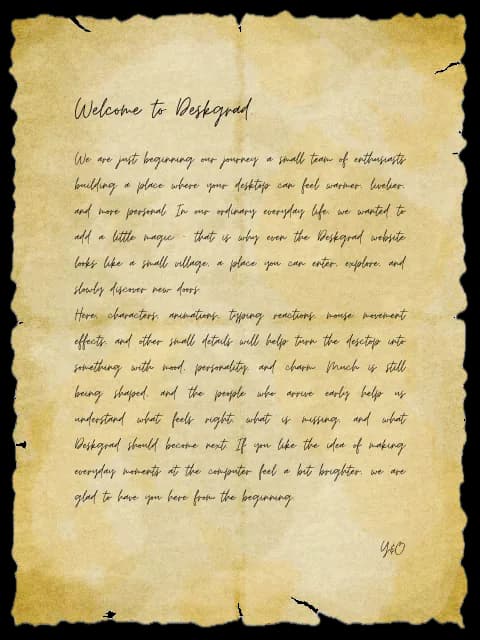 Welcome to Deskgrad.
We are just beginning our journey a small team of enthusiasts
building a place where your desktop can feel warmer, livelier,
and more personal. In our ordinary everyday life, we wanted to
add a little magic - that is why even the Deskgrad website
looks like a small village, a place you can enter, explore, and
slowly discover new doors.
Here, characters, animations, typing reactions, mouse movement
effects, and other small details will help turn the desctop into
something with mood, personality, and charm. Much is still
being shaped, and the people who arrive early help us
understand what feels right, what is missing, and what
Deskgrad should become next. If you like the idea of making
everyday moments at the computer feel a bit brighter, we are
glad to have you here from the beginning.
Y&O